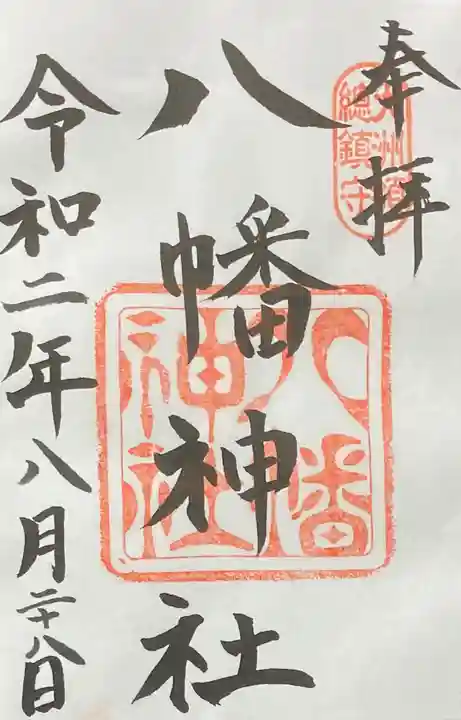 奉拝
總鎮守
八幡神社
八幡
神社
令和二年八月二十八日